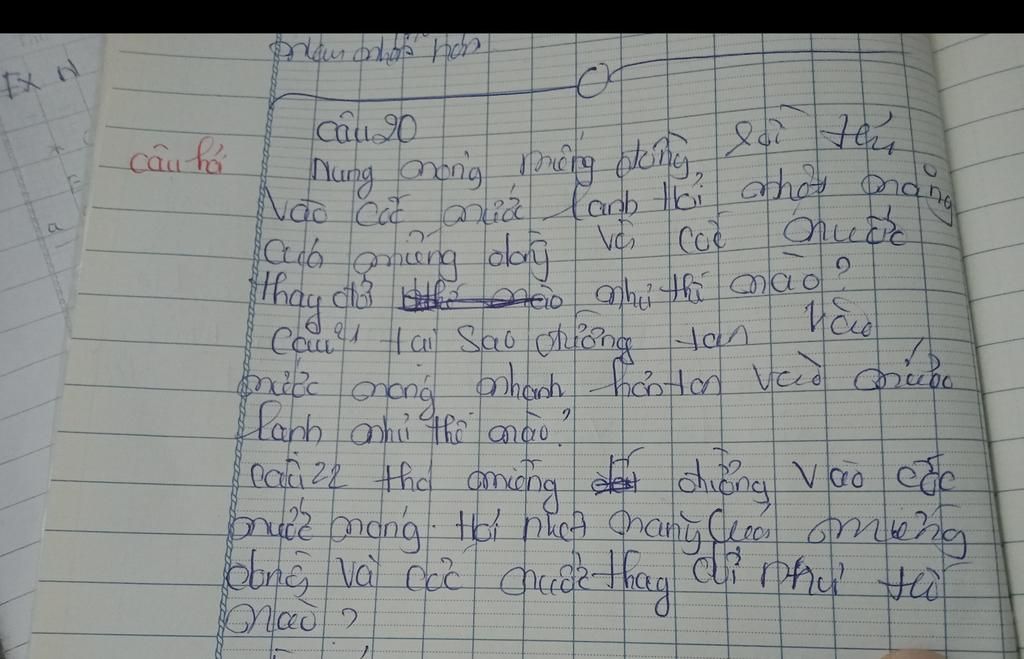 Ex N
câu hỏi
câu 20
Nung nóng miếng đồng rồi thả
vào cốc nước lạnh thì nhiệt năng
của miếng đồng và cốc nước
thay đổi như thế nào?
câu 21 tại sao đường tan vào
nước nóng nhanh hơn tan vào nước
lạnh như thế nào?
câu 22 thả miếng đồng vào cốc
nước nóng. thì nhiệt năng của miếng
đồng và cốc nước thay đổi như thế
nào?